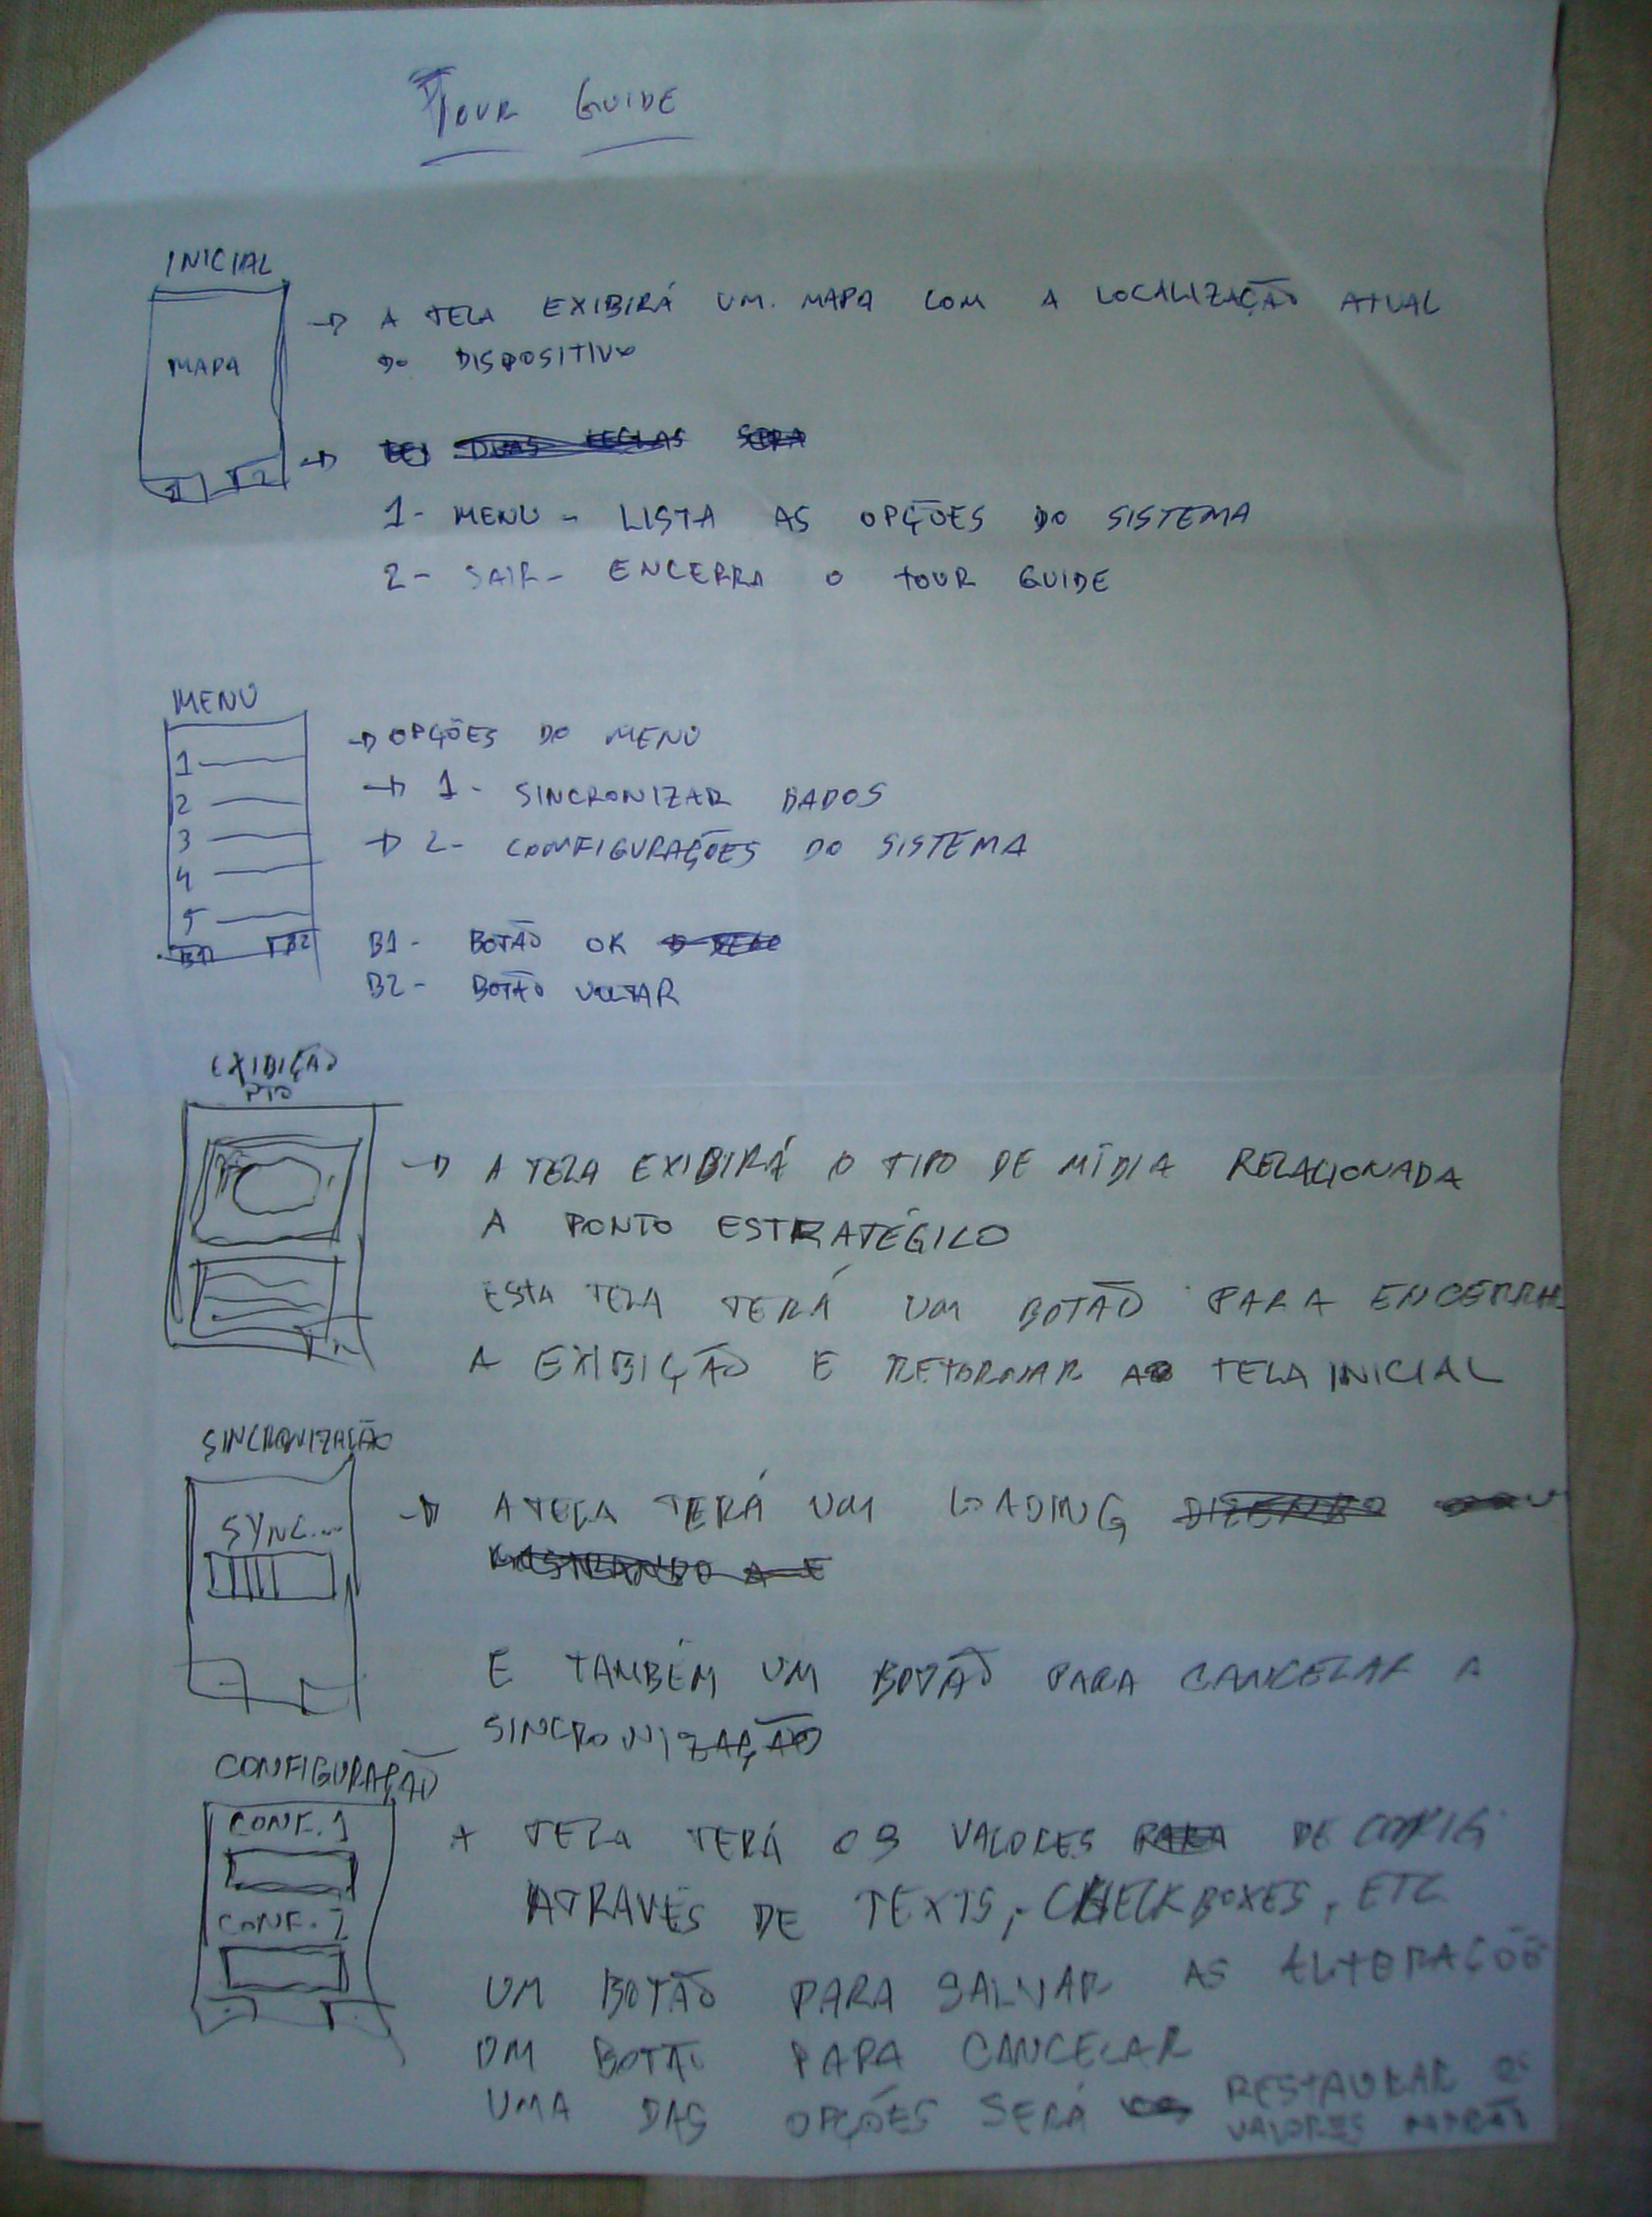 TOUR GUIDE
INICIAL
MAPA
→ A TELA EXIBIRÁ UM MAPA COM A LOCALIZAÇÃO ATUAL
DO DISPOSITIVO
→ DUAS TECLAS SERA
1 2
1- MENU - LISTA AS OPÇÕES DO SISTEMA
2- SAIR - ENCERRA O TOUR GUIDE
MENU
1
2
3
4
5
B1 B2
→ OPÇÕES DO MENU
→ 1- SINCRONIZAR DADOS
→ 2- CONFIGURAÇÕES DO SISTEMA
B1- BOTÃO OK
B2- BOTÃO VOLTAR
EXIBIÇÃO
PTO
→ A TELA EXIBIRÁ O TIPO DE MÍDIA RELACIONADA
A PONTO ESTRATÉGICO
ESTA TELA TERÁ UM BOTÃO PARA ENCERRAR
A EXIBIÇÃO E RETORNAR A TELA INICIAL
SINCRONIZAÇÃO
SYNC...
→ A TELA TERÁ UM LOADING DIZENDO
MOSTRANDO A E
E TAMBÉM UM BOTÃO PARA CANCELAR A
SINCRONIZAÇÃO
CONFIGURAÇÃO
CONF. 1
CONF. 2
A TELA TERÁ OS VALORES PARA DE CONFIG
ATRAVÉS DE TEXTS, CHECKBOXES, ETC
UM BOTÃO PARA SALVAR AS ALTERAÇÕE
UM BOTÃO PARA CANCELAR
UMA DAS OPÇÕES SERÁ RESTAURAR OS
VALORES PADRÃO